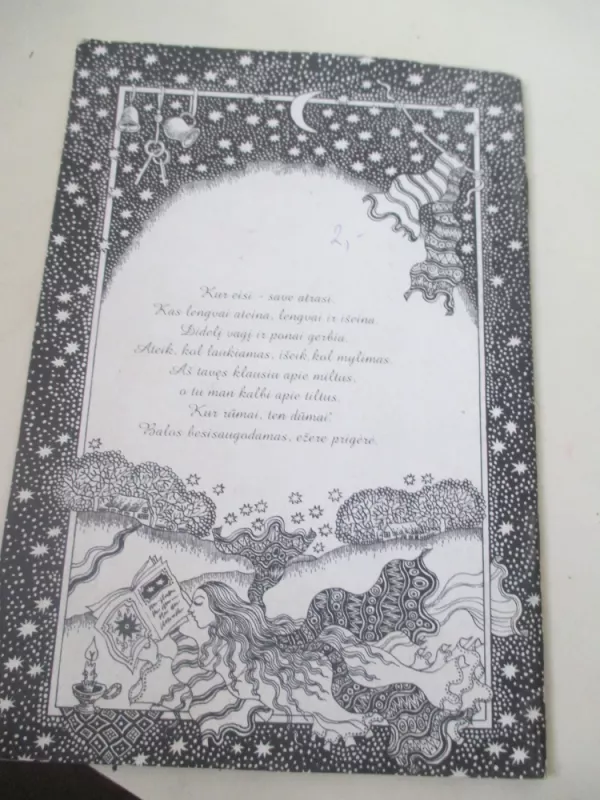 2,-
Kur eisi - save atrasi.
Kas lengvai ateina, lengvai ir išeina.
Didelį vagį ir ponai gerbia.
Ateik, kol laukiamas, išeik, kol mylimas.
Aš tavęs klausiu apie miltus,
o tu man kalbi apie tiltus.
Kur rūmai, ten dūmai!
Balos besisaugodamas, ežere prigėrė.